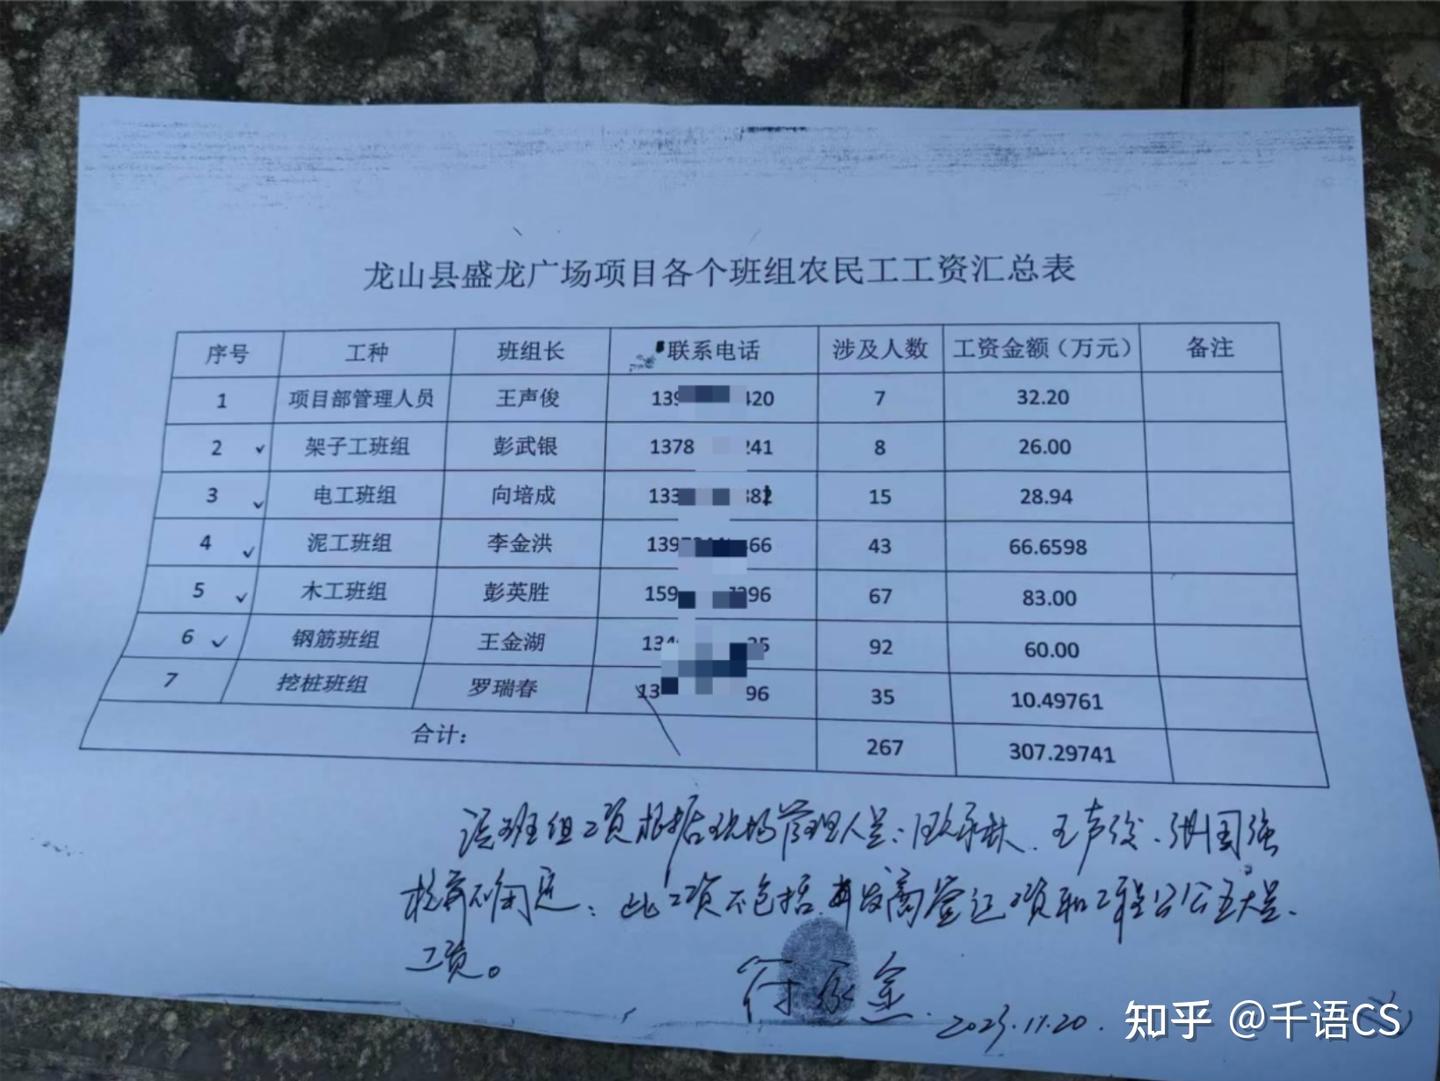 龙山县盛龙广场项目各个班组农民工工资汇总表
序号 工种 班组长 联系电话 涉及人数 工资金额（万元） 备注
1 项目部管理人员 王声俊 139 420 7 32.20
2 架子工班组 彭武银 1378 241 8 26.00
3 电工班组 向培成 133 382 15 28.94
4 泥工班组 李金洪 139 66 43 66.6598
5 木工班组 彭英胜 159 296 67 83.00
6 钢筋班组 王金湖 134 92 60.00
7 挖桩班组 罗瑞春 13 96 35 10.49761
合计： 267 307.29741
班组工资根据现场管理人员： 王声俊、张国强
此工资不包括 开发商签证工资和工程
工资。
付永金
2023.11.20.
知乎 @千语CS